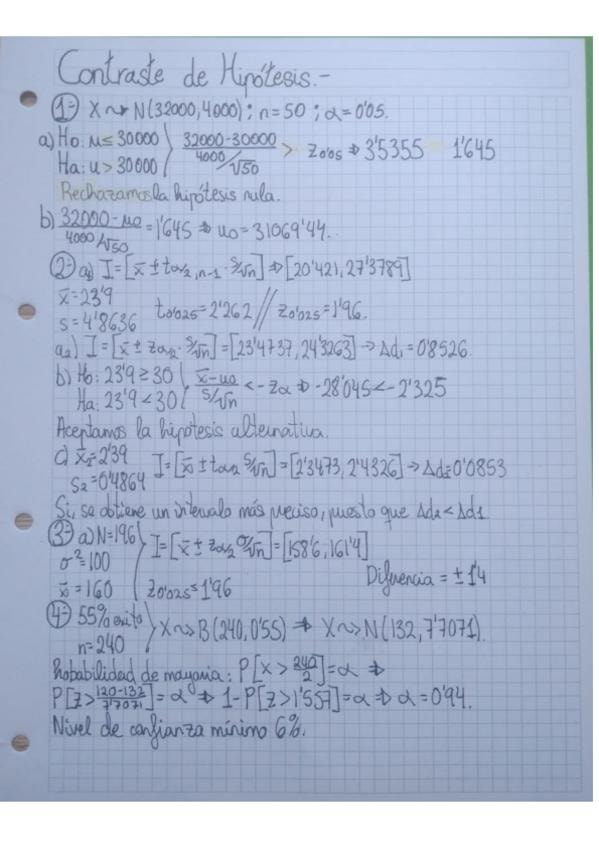 Contraste de Hipótesis.-
1- X ~> N(32000,4000); n=50; α=0'05.
a) Ho: u≤30000 } (32000-30000)/(4000/√50) > Z0'05 ⇒ 3'5355 1'645
Ha: u>30000
Rechazamos la hipótesis nula.
b) (32000-uo)/(4000/√50) = 1'645 ⇒ uo=31069'44.
2- a1) I=[x̄ ± tα/2,n-1 · S/√n] ⇒ [20'421, 27'3789]
x̄=23'9
s=4'8636 t0'025=2'262 // Z0'025=1'96.
a2) I=[x̄ ± Zα/2 · S/√n]=[23'4737, 24'3263] → Δd1=0'8526.
b) Ho: 23'9≥30 } (x̄-uo)/(S/√n) < -Zα ⇒ -28'045<-2'325
Ha: 23'9<30
Aceptamos la hipótesis alternativa.
c) x̄2=2'39 I=[x̄ ± tα/2 S/√n]=[2'3473, 2'4326] → Δd2=0'0853
S2=0'4864
Si, se obtiene un intervalo más preciso, puesto que Δd2<Δd1
3- a) N=196 } I=[x̄ ± Zα/2 σ/√n]=[158'6, 161'4]
σ²=100
x̄=160 Z0'025=1'96 Diferencia = ±1'4
4- 55% exito } X~>B(240,0'55) ⇒ X~>N(132,7'7071).
n=240
Probabilidad de mayoria: P[X>240/2]=α ⇒
P[Z>(120-132)/7'7071]=α ⇒ 1-P[Z>1'557]=α ⇒ α=0'94.
Nivel de confianza mínimo 6%.